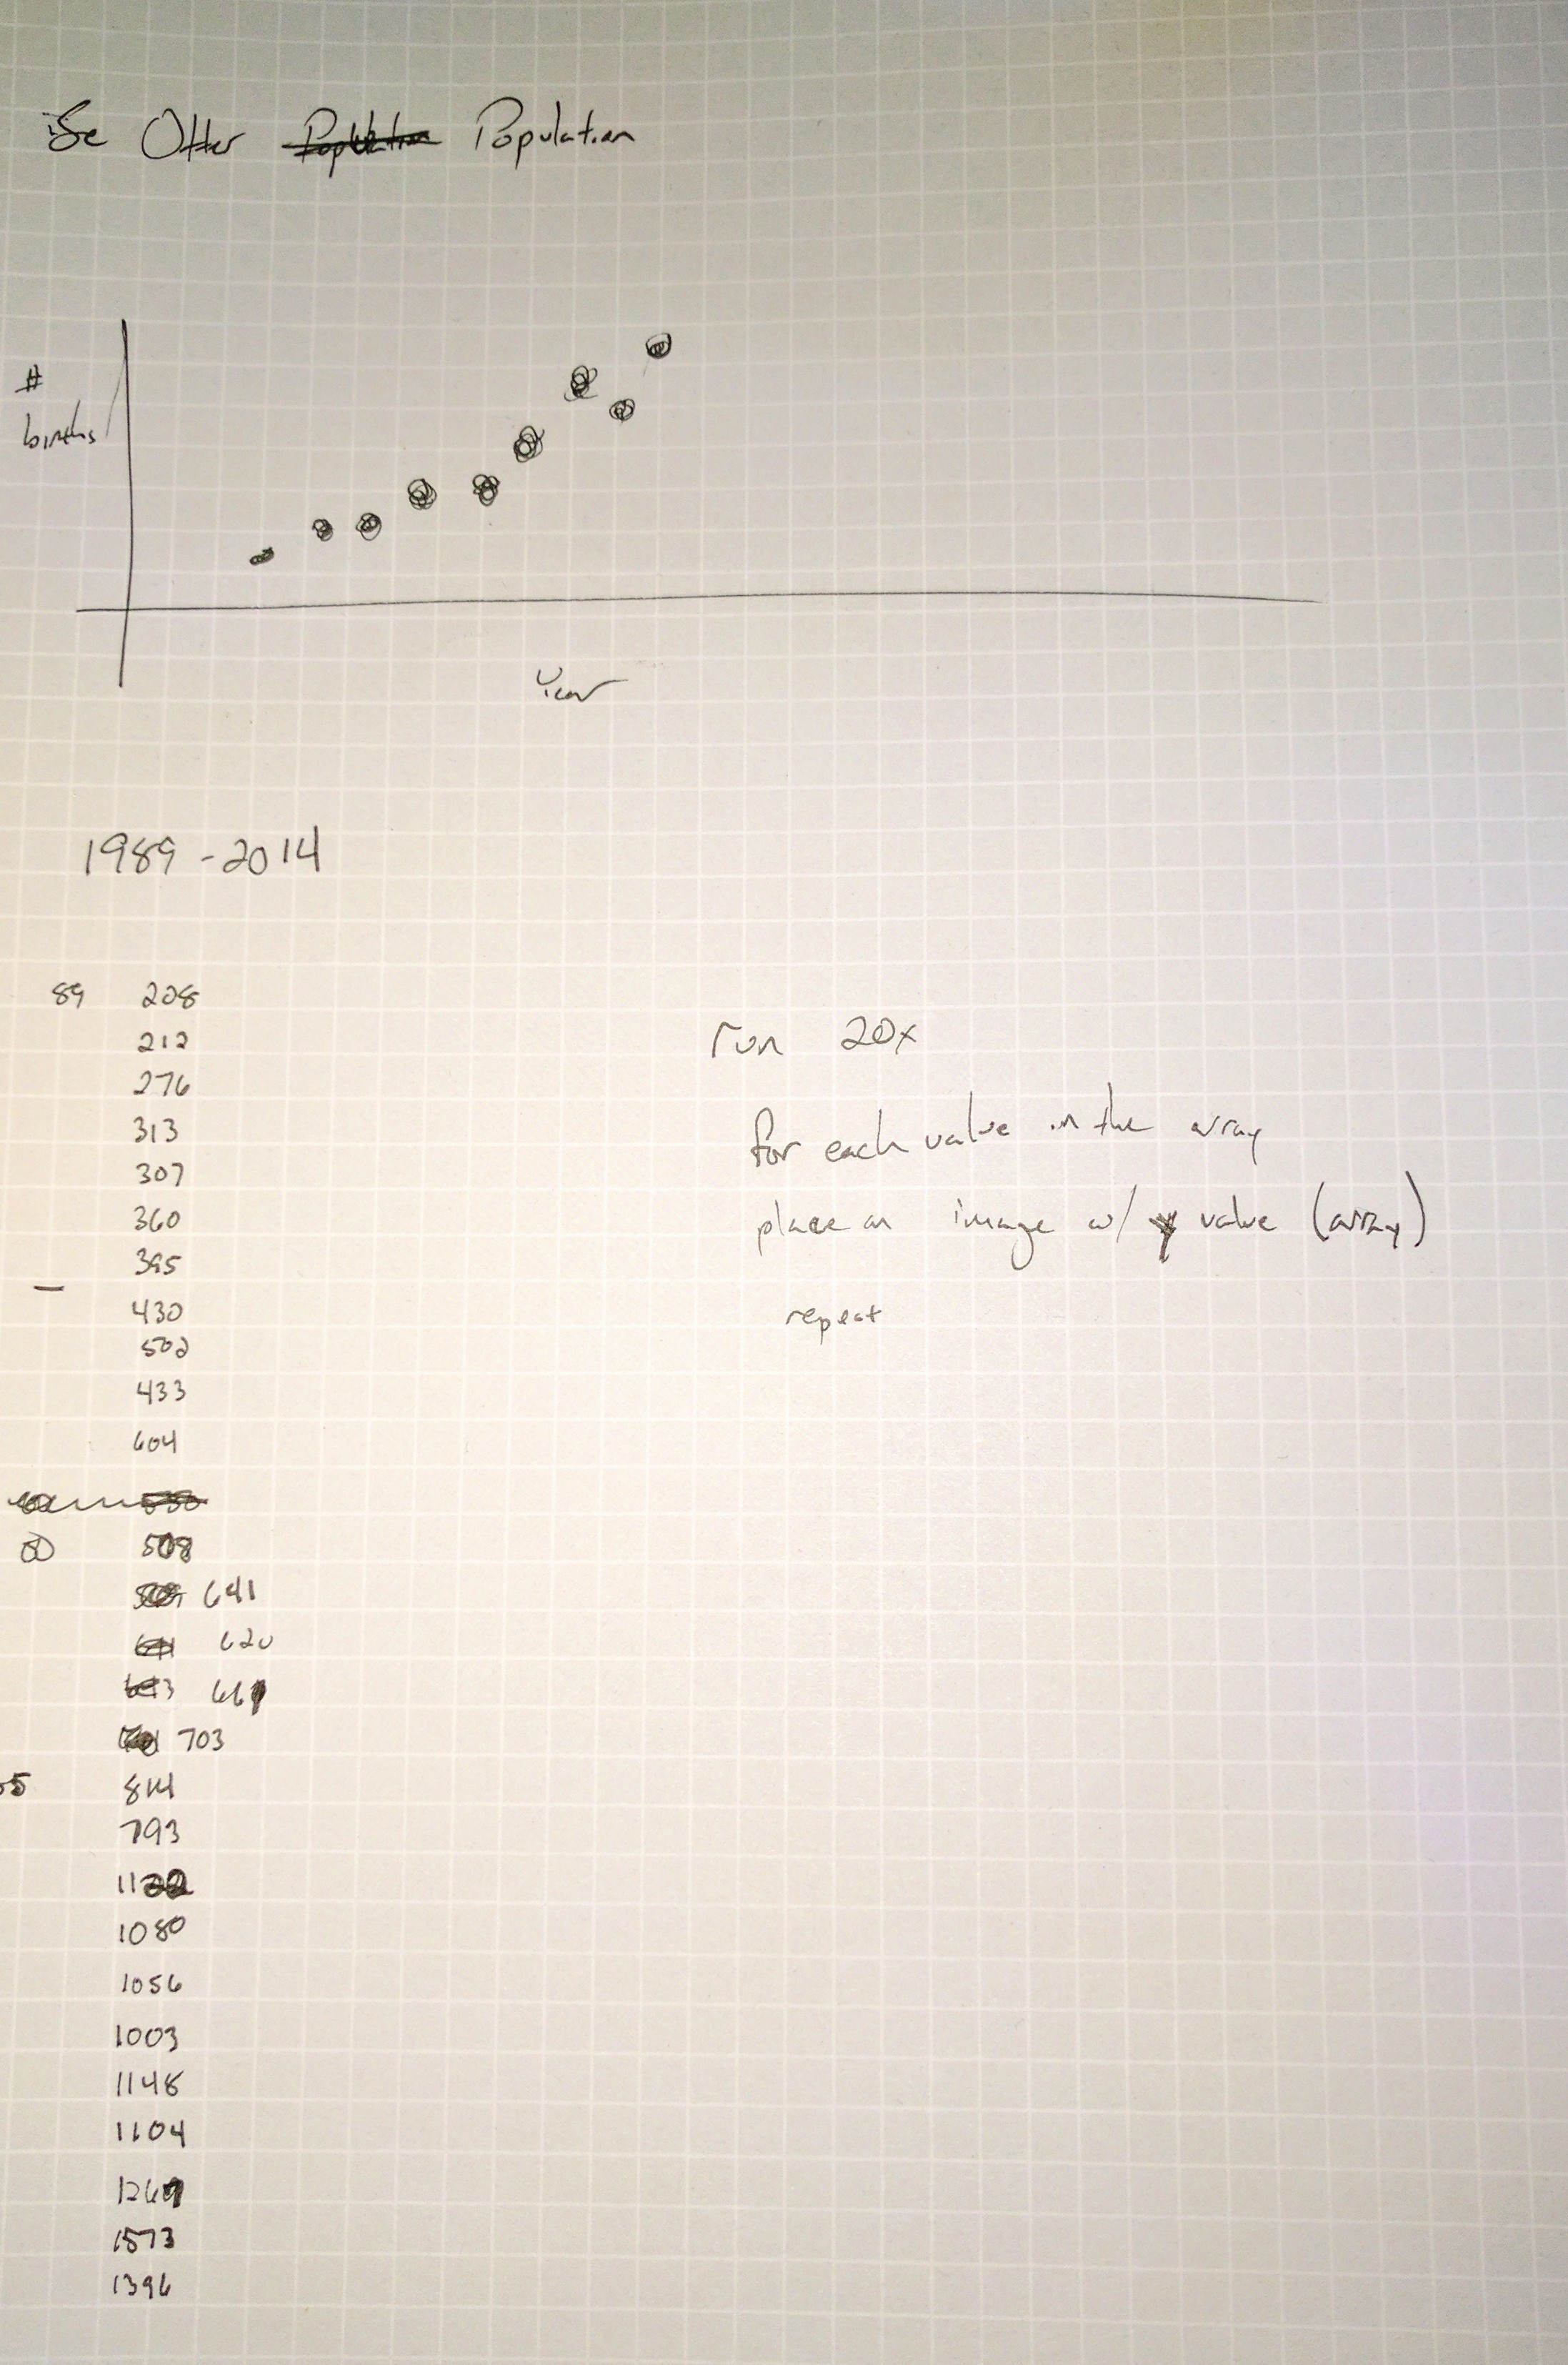 Se Otter Population
#
births
Year
1989 - 2014
89 208
212
276
313
307
360
395
430
502
433
604
508
641
620
703
814
793
1080
1056
1003
1148
1104
1573
1396
run 20x
for each value in the array
place an image w/ y value (array)
repeat